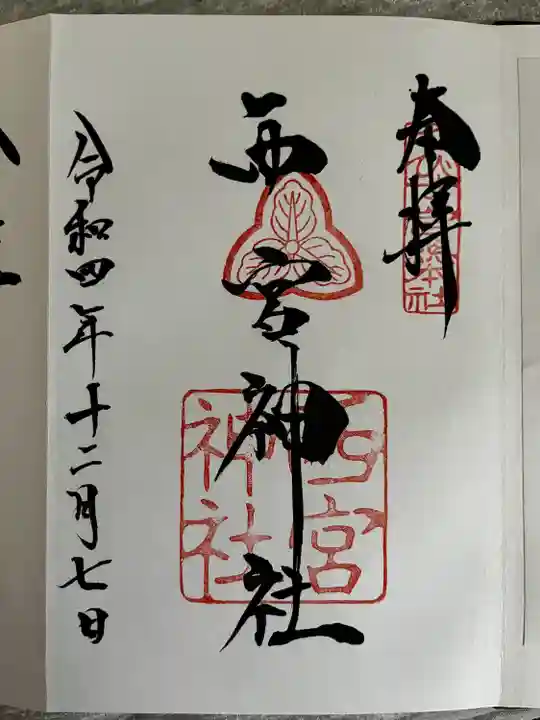 奉拝
西宮神社
西宮
神社
令和四年十二月七日